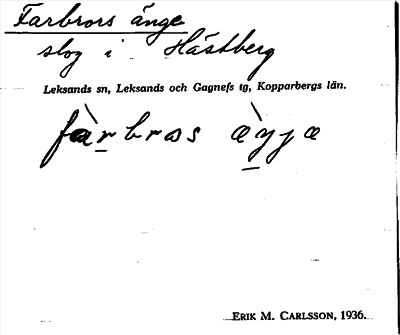 Farbrors änge
slog i Hästberg
Leksands sn, Leksands och Gagnefs tg, Kopparbergs län.
fàrbros æ̀yjæ
ERIK M. CARLSSON, 1936.